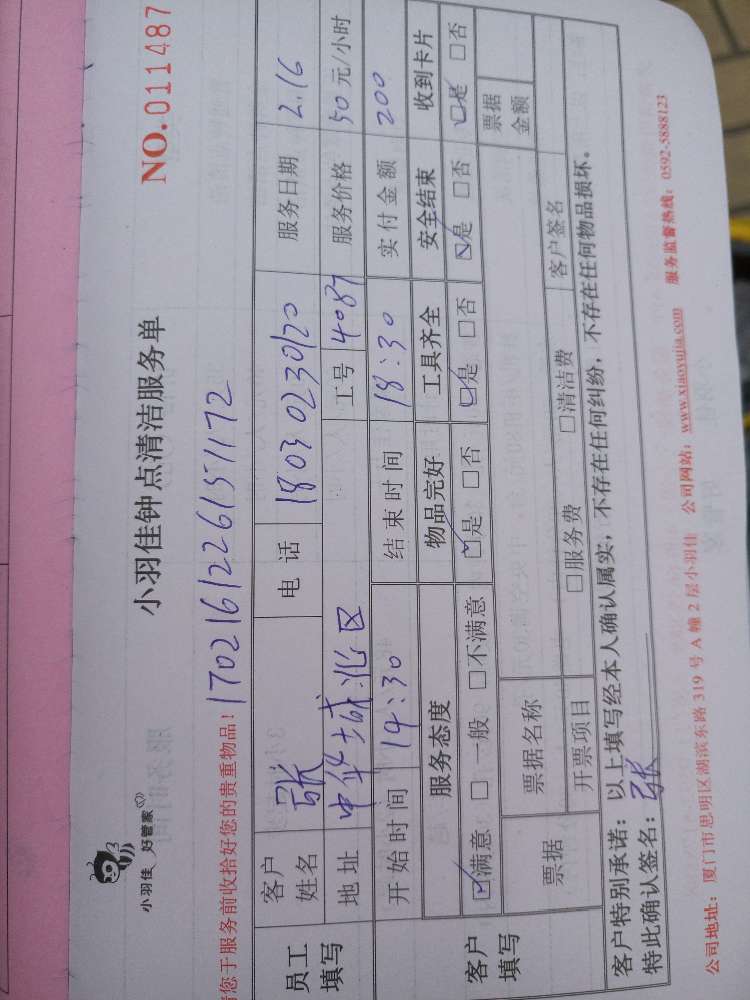 小羽佳 好管家
小羽佳钟点清洁服务单
NO.011487
您于服务前收拾好您的贵重物品! 170216122615172
员工填写 客户姓名 张 电话 18030230120 服务日期 2.16
地址 中华城北区 工号 4087 服务价格 50元/小时
客户填写 开始时间 14:30 结束时间 18:30 实付金额 200
服务态度 物品完好 工具齐全 安全结束 收到卡片
☑满意 □一般 □不满意 ☑是 □否 ☑是 □否 ☑是 □否 ☑是 □否
票据 票据名称 票据金额
开票项目 □服务费 □清洁费 客户签名
客户特别承诺: 以上填写经本人确认属实, 不存在任何纠纷, 不存在任何物品损坏。
特此确认签名: 张
公司地址: 厦门市思明区湖滨东路319号A幢2层小羽佳 公司网站: www.xiaoyujia.com 服务监督热线: 0592-5888123